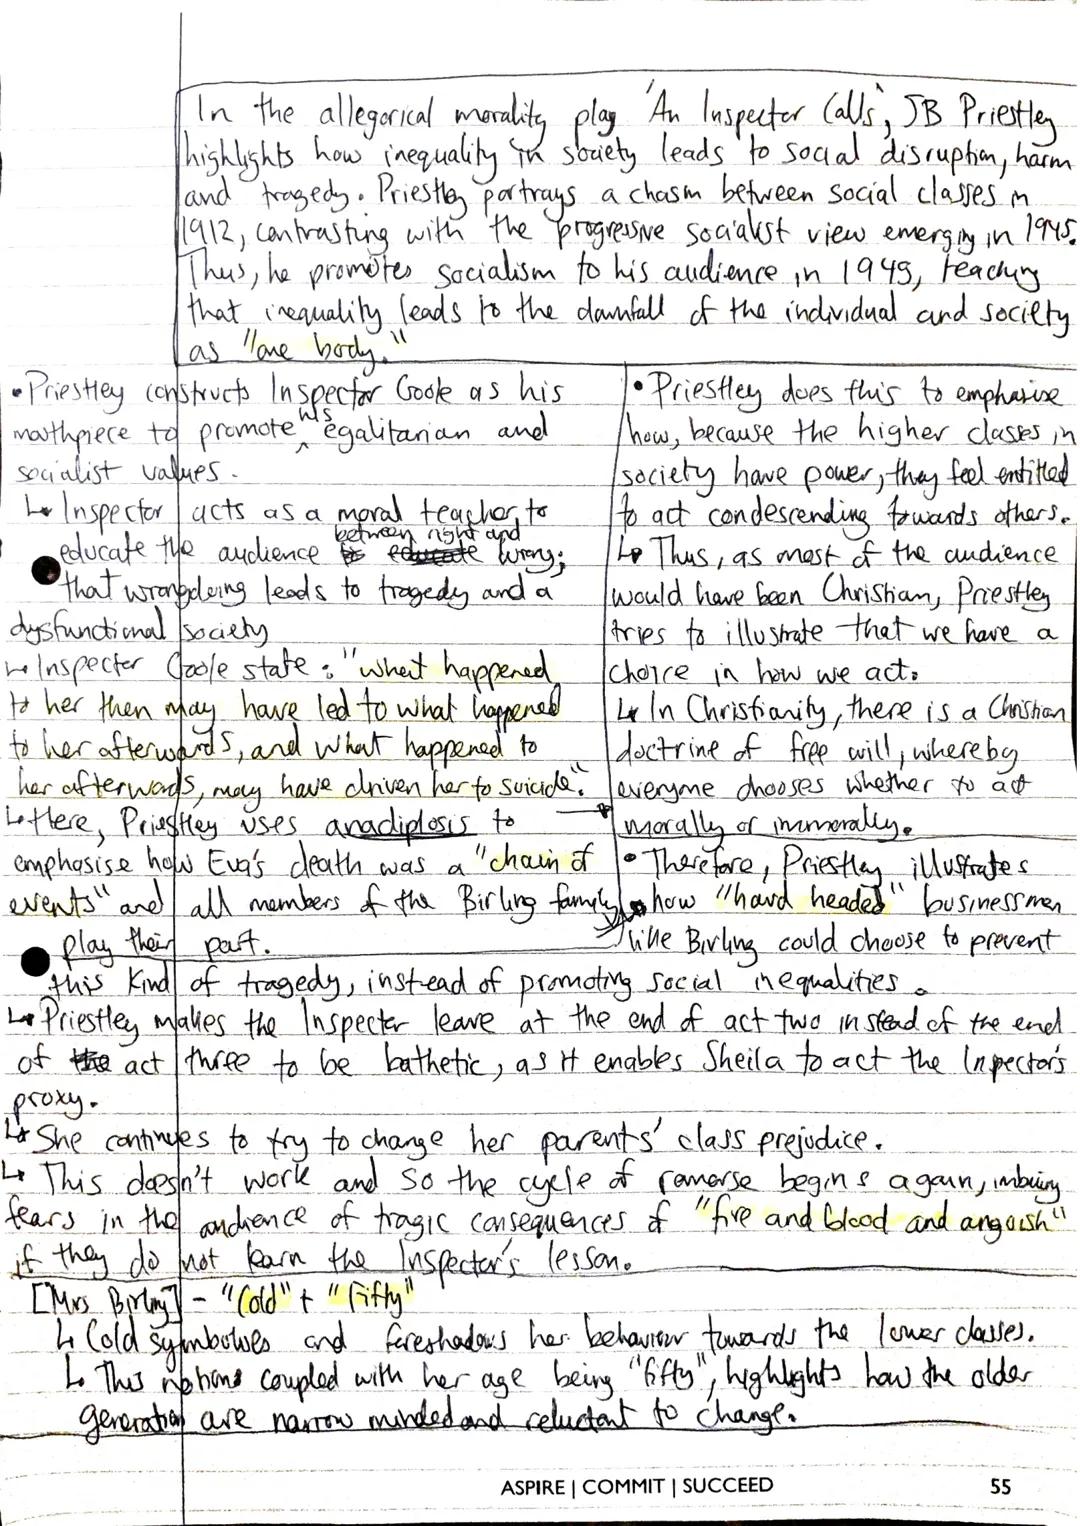 In the allegorical morality play 'An Inspector Calls', JB Priestley
highlights how inequality in society leads to social disruption, harm
and tragedy. Priestley portrays a chasm between social classes in
1912, contrasting with the progressive socialist view emerging in 1945.
Thus, he promotes socialism to his audience in 1945, teaching
that inequality leads to the downfall of the individual and society
as "one body."
• Priestley constructs Inspector Goole as his
mouthpiece to promote his egalitarian and
socialist values.
↳ Inspector acts as a moral teacher, to
educate the audience between right and wrong;
that wrongdoing leads to tragedy and a
dysfunctional society
↳ Inspector Goole state : "what happened
to her then may have led to what happened
to her afterwards, and what happened to
her afterwards, may have driven her to suicide".
↳ Here, Priestley uses anadiplosis to
emphasise how Eva's death was a "chain of
events" and all members of the Birling family
play their part.
• Priestley does this to emphasise
how, because the higher classes in
society have power, they feel entitled
to act condescending towards others.
↳ Thus, as most of the audience
would have been Christian, Priestley
tries to illustrate that we have a
choice in how we act.
↳ In Christianity, there is a Christian
doctrine of free will, whereby
everyone chooses whether to act
morally or immorally.
• Therefore, Priestley illustrates
how "hard headed" businessmen
like Birling could choose to prevent
this kind of tragedy, instead of promoting social inequalities.
↳ Priestley makes the Inspector leave at the end of act two instead of the end
of the act three to be bathetic, as it enables Sheila to act the Inpector's
proxy.
↳ She continues to try to change her parents' class prejudice.
↳ This doesn't work and so the cycle of remorse begins again, imbuing
fears in the audience of tragic consequences of "fire and blood and anguish"
if they do not learn the Inspector's lesson.
[Mrs Birling] - "Cold" + "fifty"
↳ Cold symbolises and foreshadows her behaviour towards the lower classes.
↳ This notions coupled with her age being "fifty", highlights how the older
generation are narrow minded and reluctant to change.
ASPIRE | COMMIT | SUCCEED 55